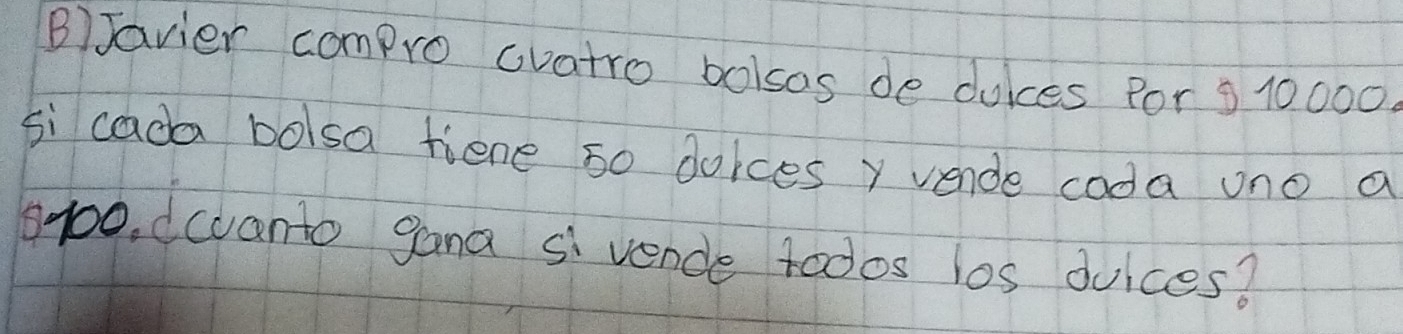 B) Javier compro cuatro bolsas de dulces Por $ 10000.
si cada bolsa tiene 50 dulces y vende cada uno a
$100. ¿cuanto gana si vende todos los dulces?